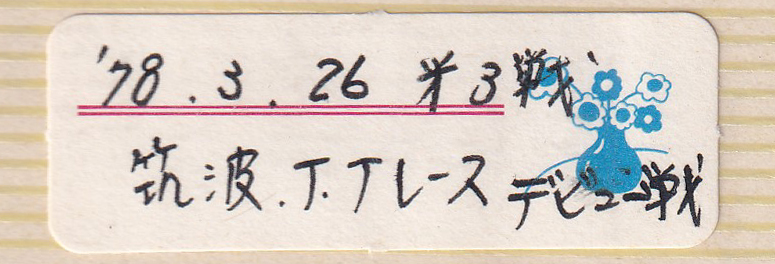 '78.3.26 㐧3戦
筑波.T.Tレース デビュー戦